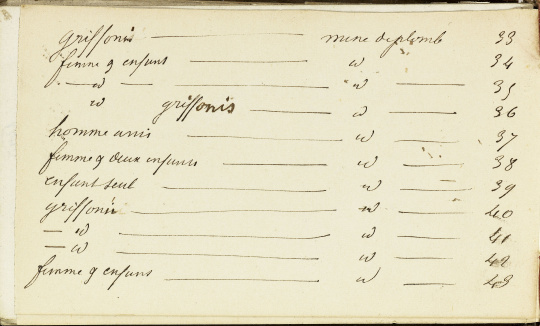 griffonis — mine de plomb 33
femme & enfant — id 34
— id — — id — 35
id griffonis — id — 36
homme assis — id — 37
femme & deux enfants — id — 38
enfant seul — id — 39
griffonis — id — 40
— id — id — 41
— id — id — 42
femme & enfans — id — 43